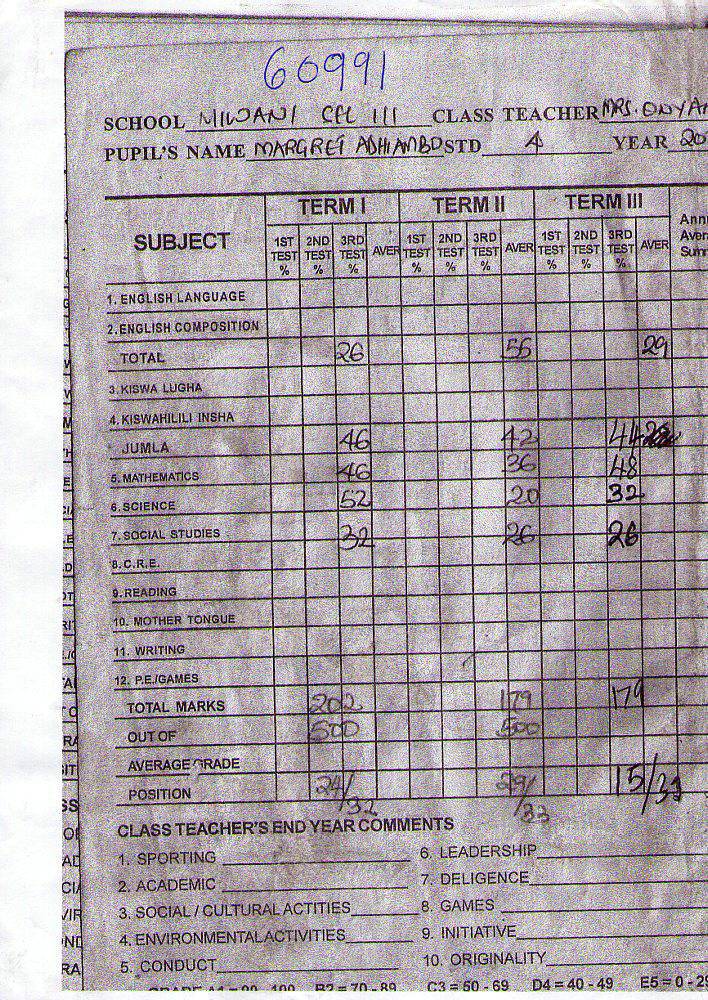 60991
SCHOOL MIWANI CEL III CLASS TEACHER MRS. ONYA
PUPIL'S NAME MARGRET ADHIAMBO STD 4 YEAR 20
SUBJECT TERM I TERM II TERM III
1ST TEST % 2ND TEST % 3RD TEST % AVER 1ST TEST % 2ND TEST % 3RD TEST % AVER 1ST TEST % 2ND TEST % 3RD TEST % AVER
1. ENGLISH LANGUAGE
2. ENGLISH COMPOSITION
TOTAL 26 56 29
3. KISWA LUGHA
4. KISWAHILILI INSHA
JUMLA 46 42 44
5. MATHEMATICS 46 36 48
6. SCIENCE 52 20 32
7. SOCIAL STUDIES 32 26 26
8. C.R.E.
9. READING
10. MOTHER TONGUE
11. WRITING
12. P.E./GAMES
TOTAL MARKS 202 179 179
OUT OF 500 500
AVERAGE GRADE
POSITION 24/32 29/33 15/33
CLASS TEACHER'S END YEAR COMMENTS
1. SPORTING 6. LEADERSHIP
2. ACADEMIC 7. DELIGENCE
3. SOCIAL / CULTURAL ACTITIES 8. GAMES
4. ENVIRONMENTAL ACTIVITIES 9. INITIATIVE
5. CONDUCT 10. ORIGINALITY
B2 = 70 - 89 C3 = 50 - 69 D4 = 40 - 49 E5 = 0 - 29